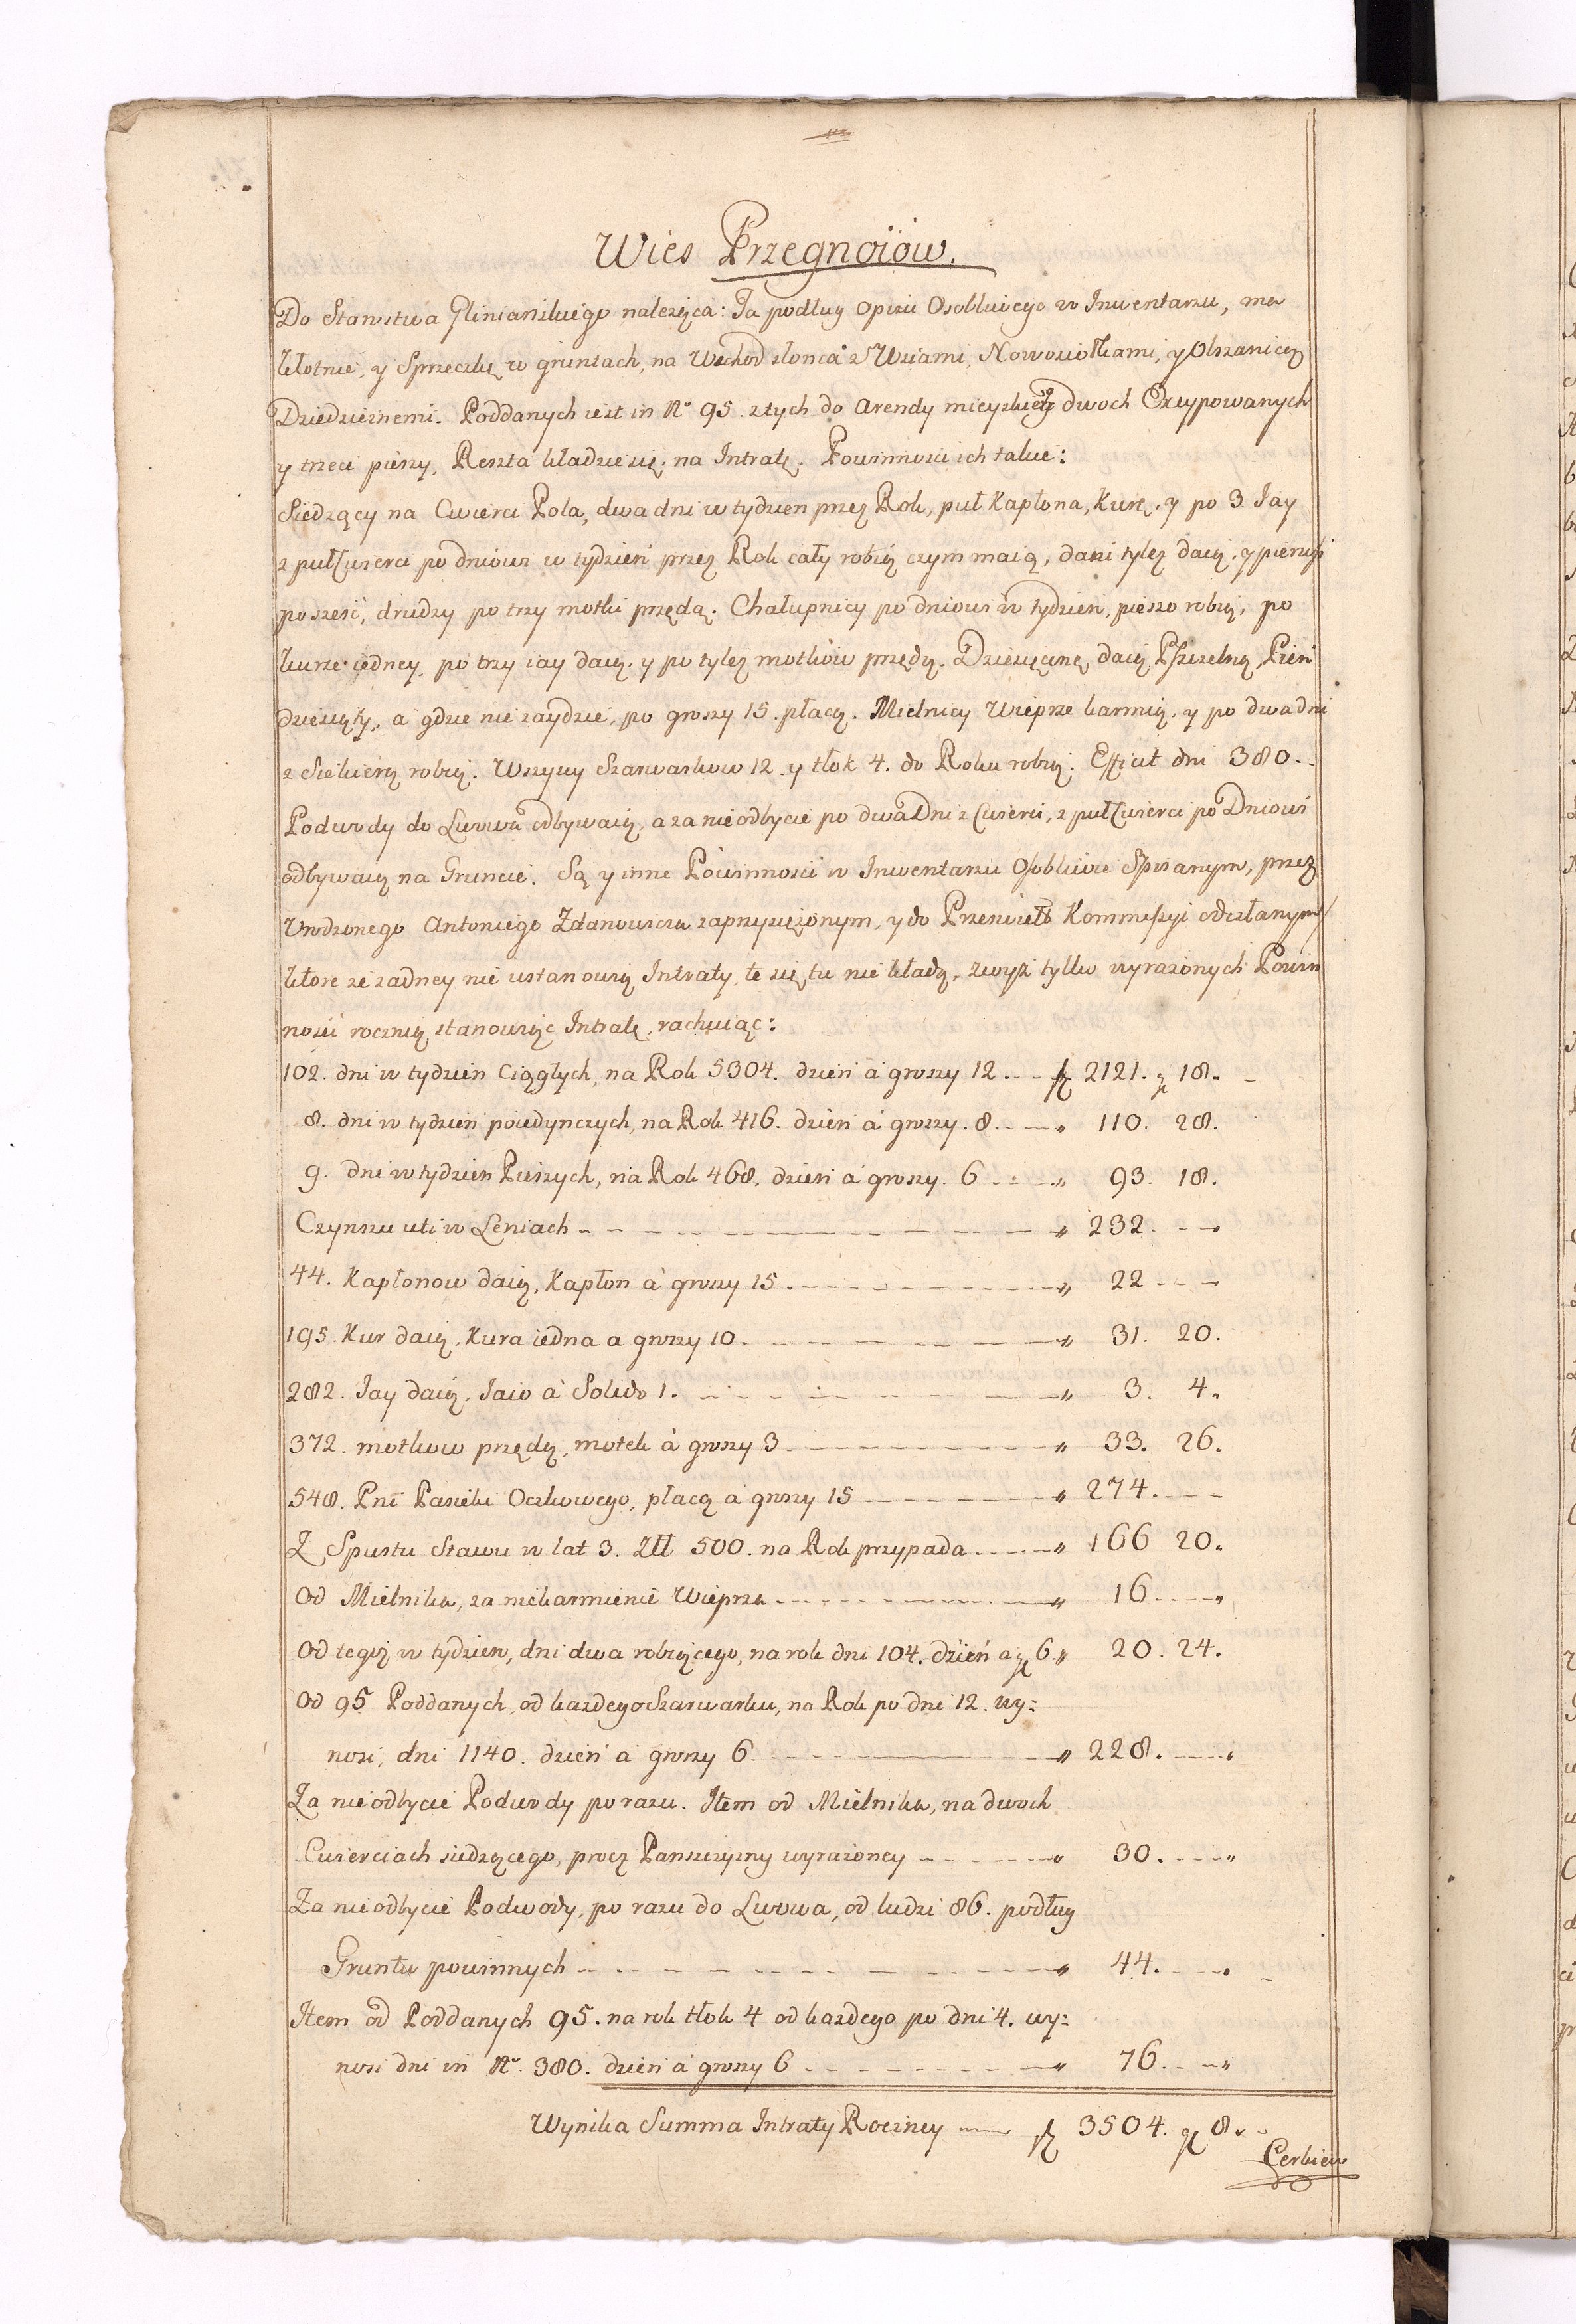 Wies Przegnoiów.
Do Starostwa Gliniańskiego należąca: Ta podług Opisu Osobliwego w Inwentarzu, ma
kłotnie, y Sprzeczkę w gruntach, na Wschod słonca z Wsiami, Nowosiołkami, y Olszanicą
Dziedzicznemi. Poddanych iest in No 95. z tych do Arendy mieyskiey dwoch Excypowanych
y trzeci pieszy, Reszta kładzie się na Intratę. Powinnosci ich takie:
Siedzący na Cwierci Pola, dwa dni w tydzien przez Rok, puł Kapłona, Kurę, y po 3 Jay
z puł Cwierci po dniowi w tydzień przez Rok cały robią czym maią, dani tylez daią, y pierwsi
po sześć, drudzy po trzy motki przędą. Chałupnicy po dniowi w tydzien, pieszo robią, po
kurze iedney, po trzy iay daią, y po tylez motków przędą. Dziesięcinę daią Pszczelną, Pień
dziesiąty, a gdzie nie zaydzie, po groszy 15. płacą. Mielnicy Wieprze karmią, y po dwa dni
z Siekierą robią. Wszyscy Szarwarkow 12. y tłok 4. do Roku robią. Efficit dni 380.
Podwody do Lwowa odbywaią, a za nieodbycie po dwa Dni z Cwierci, z puł Cwierci po Dniowi
odbywaią na Gruncie. Są y inne Powinnosci w Inwentarzu Osobliwie Spisanym, przez
Urodzonego Antoniego Zdanowicza zaprzysiężonym, y do Prześwietᵉʸ Kommissyi odesłanym,
ktore ze zadney nie ustanowią Intraty, te się tu nie kładą, zwyż tylko wyrażonych Powin
nosci roczną stanowiąc Intratę, rachuiąc:
102. dni w tydzien Ciągłych, na Rok 5304. dzień á groszy 12. fl 2121. gr 18.
8. dni w tydzień poiedynczych, na Rok 416. dzień á groszy. 8. " 110. 28.
9. dni w tydzien Pieszych, na Rok 468. dzień á groszy. 6 " 93. 18.
Czynszu uti w Leniach " 232.
44. Kapłonow daią, Kapłon á groszy 15. " 22
195. Kur daią, Kura iedna a groszy 10. " 31. 20.
282. Jay daią, Jaio á Solido 1. " 3. 4.
372. motkow przędą, motek á groszy 3 " 33. 26.
548. Pni Pasieki Oczkowego, płacą á groszy 15 " 274.
Z Spustu Stawu w lat 3. Złł 500. na Rok przypada " 166 20.
Od Mielnika, za niekarmienie Wieprza " 16
Od tegoż w tydzien, dni dwa robiącego, na rok dni 104. dzień a gr 6. " 20. 24.
Od 95 Poddanych, od kazdego Szarwarku, na Rok po dni 12. wy:
nosi, dni 1140. dzień á groszy 6. " 228.
Za nieodbycie Podwody po razu. Item od Mielnika, na dwoch
Cwierciach siedzącego, procz Panszczyzny wyrażoney " 30.
Za nieodbycie Podwody, po razu do Lwowa, od ludzi 86. podług
Gruntu powinnych " 44.
Item od Poddanych 95. na rok tłok 4 od kazdego po dni 4. wy:
nosi dni in No. 380. dzień á groszy 6 " 76.
Wynika Summa Intraty Roczney fl 3504. gr 8.
Cerkiew